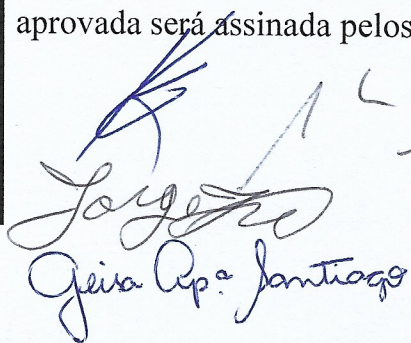 aprovada será assinada pelos
Jorge
Geisa Apª Santiago